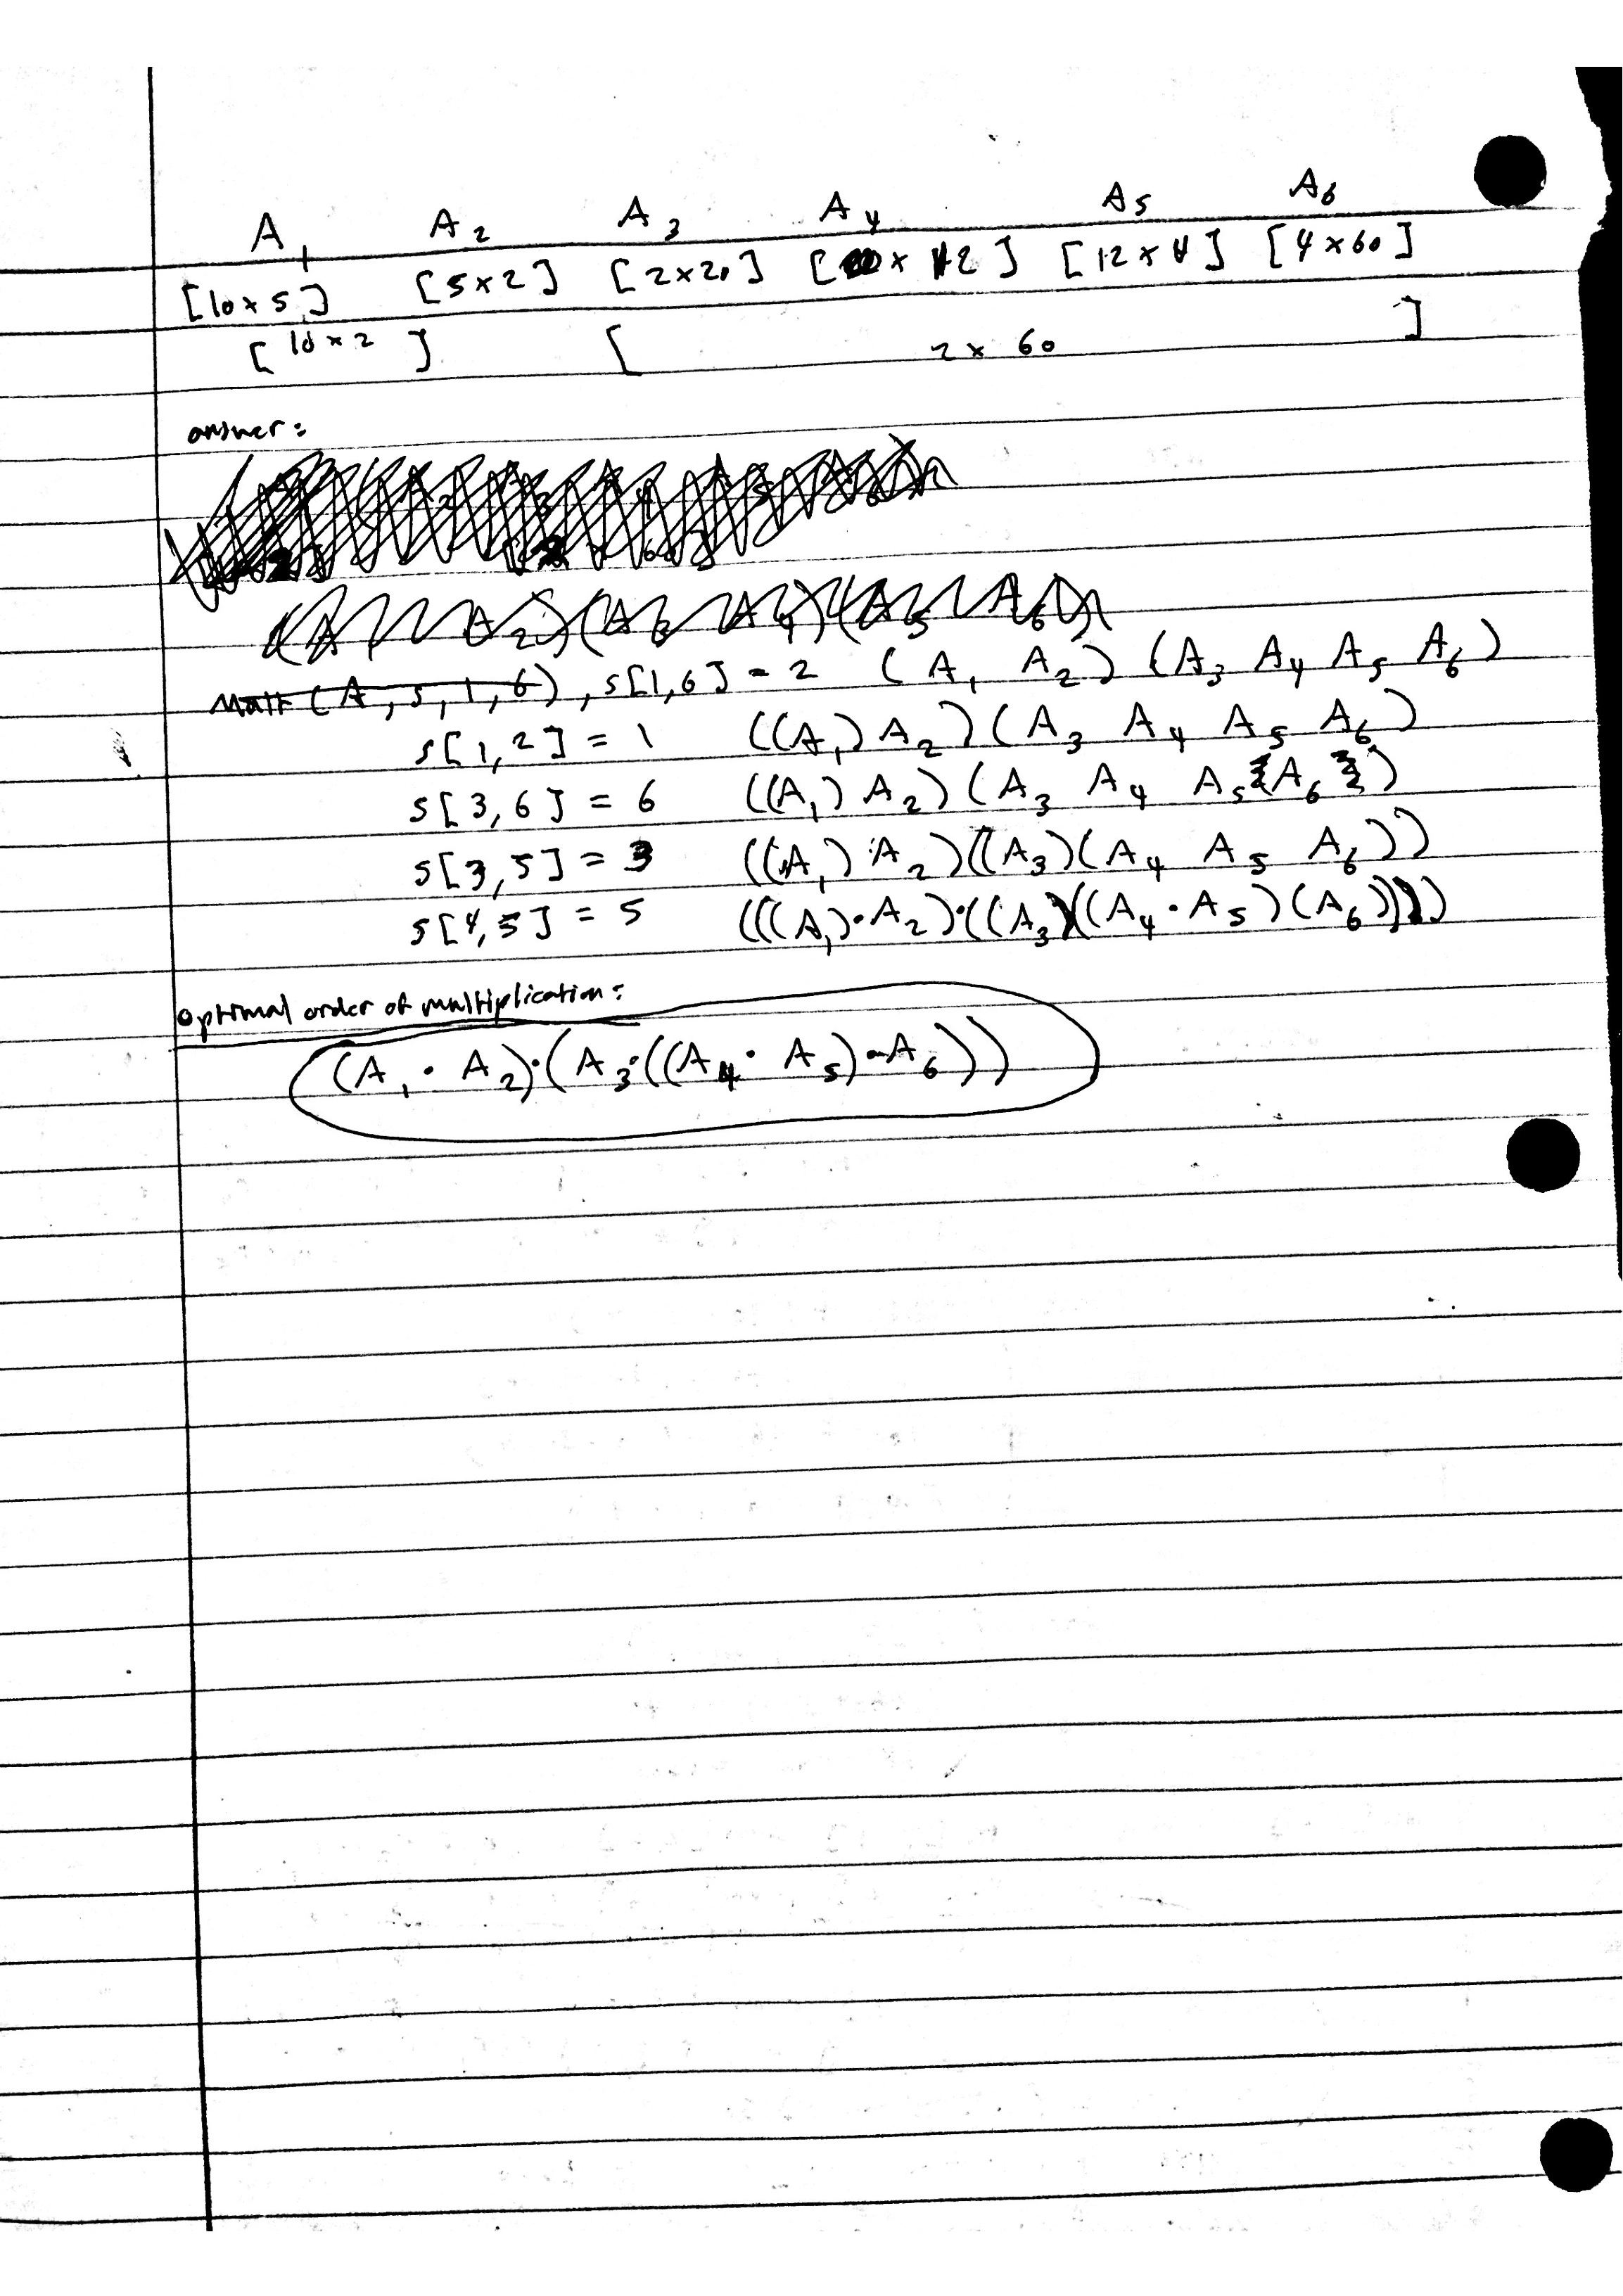 A₁ A₂ A₃ A₄ A₅ A₆
[10 x 5] [5 x 2] [2 x 20] [ x 12] [12 x 4] [4 x 60]
[10 x 2] [2 x 60]
answer:
(A₁ A₂)(A₃ A₄)(A₅ A₆)
(A, s, 1, 6), s[1,6] = 2 (A₁ A₂) (A₃ A₄ A₅ A₆)
s[1,2] = 1 ((A₁) A₂) (A₃ A₄ A₅ A₆)
s[3,6] = 6 ((A₁) A₂) (A₃ A₄ A₅ A₆)
s[3,5] = 3 ((A₁) A₂)((A₃)(A₄ A₅ A₆))
s[4,5] = 5 (((A₁)·A₂)·((A₃)((A₄·A₅)(A₆))))
Optimal order of multiplication:
(A₁ · A₂)·(A₃·((A₄ · A₅)·A₆))